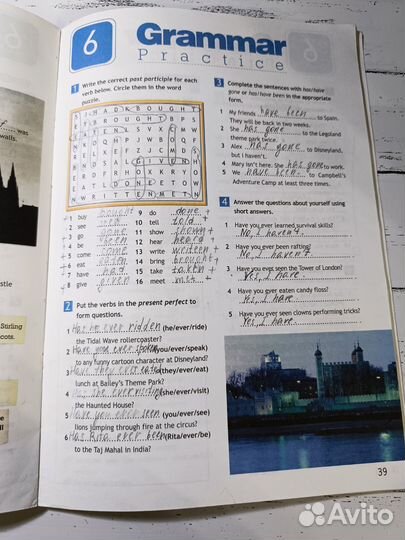 6
Grammar
Practice
1 Write the correct past participle for each
verb below. Circle them in the word
puzzle.
1 buy bought
2 see
3 go gone
4 be been
5 come come
6 eat eaten
7 have had
8 give given
9 do done +
10 tell told +
11 show shown +
12 hear heard +
13 write written +
14 bring brought +
15 take taken +
16 meet met +
2 Put the verbs in the present perfect to
form questions.
1 Has he ever ridden (he/ever/ride)
the Tidal Wave rollercoaster?
2 Have you ever spoken (you/ever/speak)
to any funny cartoon character at Disneyland?
3 Have they ever eaten (they/ever/eat)
lunch at Bailey's Theme Park?
4 she ever (she/ever/visit)
the Haunted House?
5 Have you ever seen (you/ever/see)
lions jumping through fire at the circus?
6 Has Rita ever been (Rita/ever/be)
to the Taj Mahal in India?
3 Complete the sentences with has/have
gone or has/have been in the appropriate
form.
1 My friends have been to Spain.
They will be back in two weeks.
2 She has gone to the Legoland
theme park twice.
3 Alex has gone to Disneyland,
but I haven't.
4 Mary isn't here. She has gone to work.
5 We have been to Campbell's
Adventure Camp at least three times.
4 Answer the questions about yourself using
short answers.
1 Have you ever learned survival skills?
No, I haven't.
2 Have you ever been rafting?
No, I haven't.
3 Have you ever seen the Tower of London?
Yes, I have.
4 Have you ever eaten candy floss?
Yes, I have.
5 Have you ever seen clowns performing tricks?
Yes, I have.
39
was
walls.
stle
Stirling
cots.
Avito